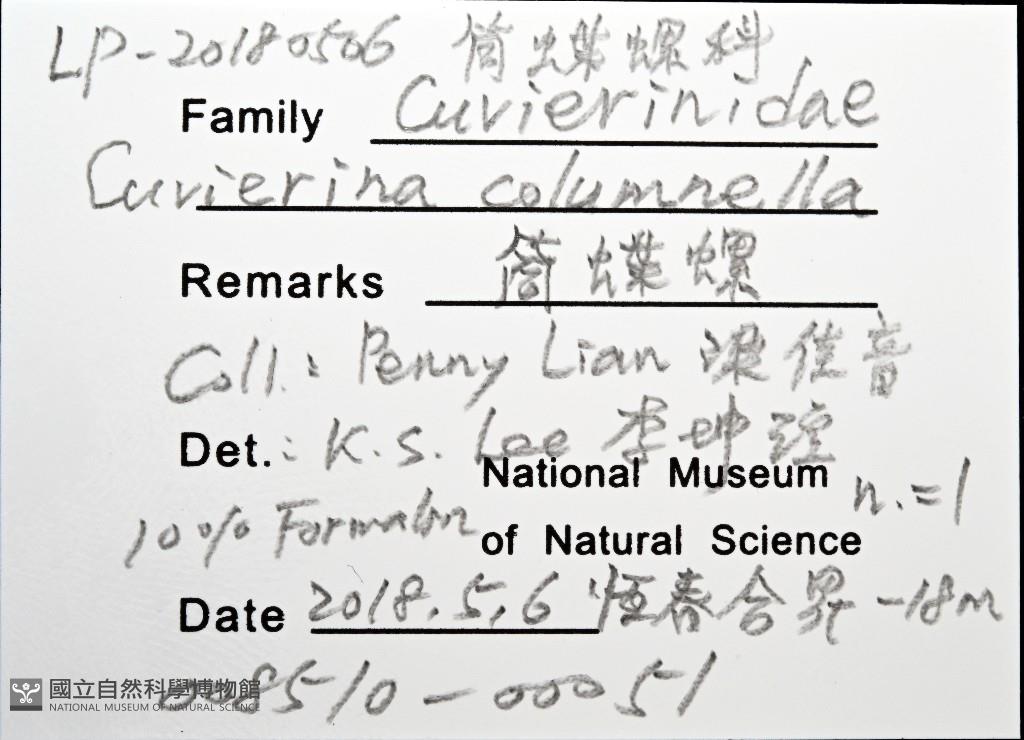 LP-20180506 筒蝶螺科
Family Cuvierinidae
Cuvierina columnella
Remarks 筒蝶螺
Coll.: Penny Lian 梁佳音
Det.: K.S. Lee 李坤瑄
National Museum n.=1
10% Formalin of Natural Science
Date 2018.5.6 恆春合界 -18m
008510-00051
國立自然科學博物館
NATIONAL MUSEUM OF NATURAL SCIENCE